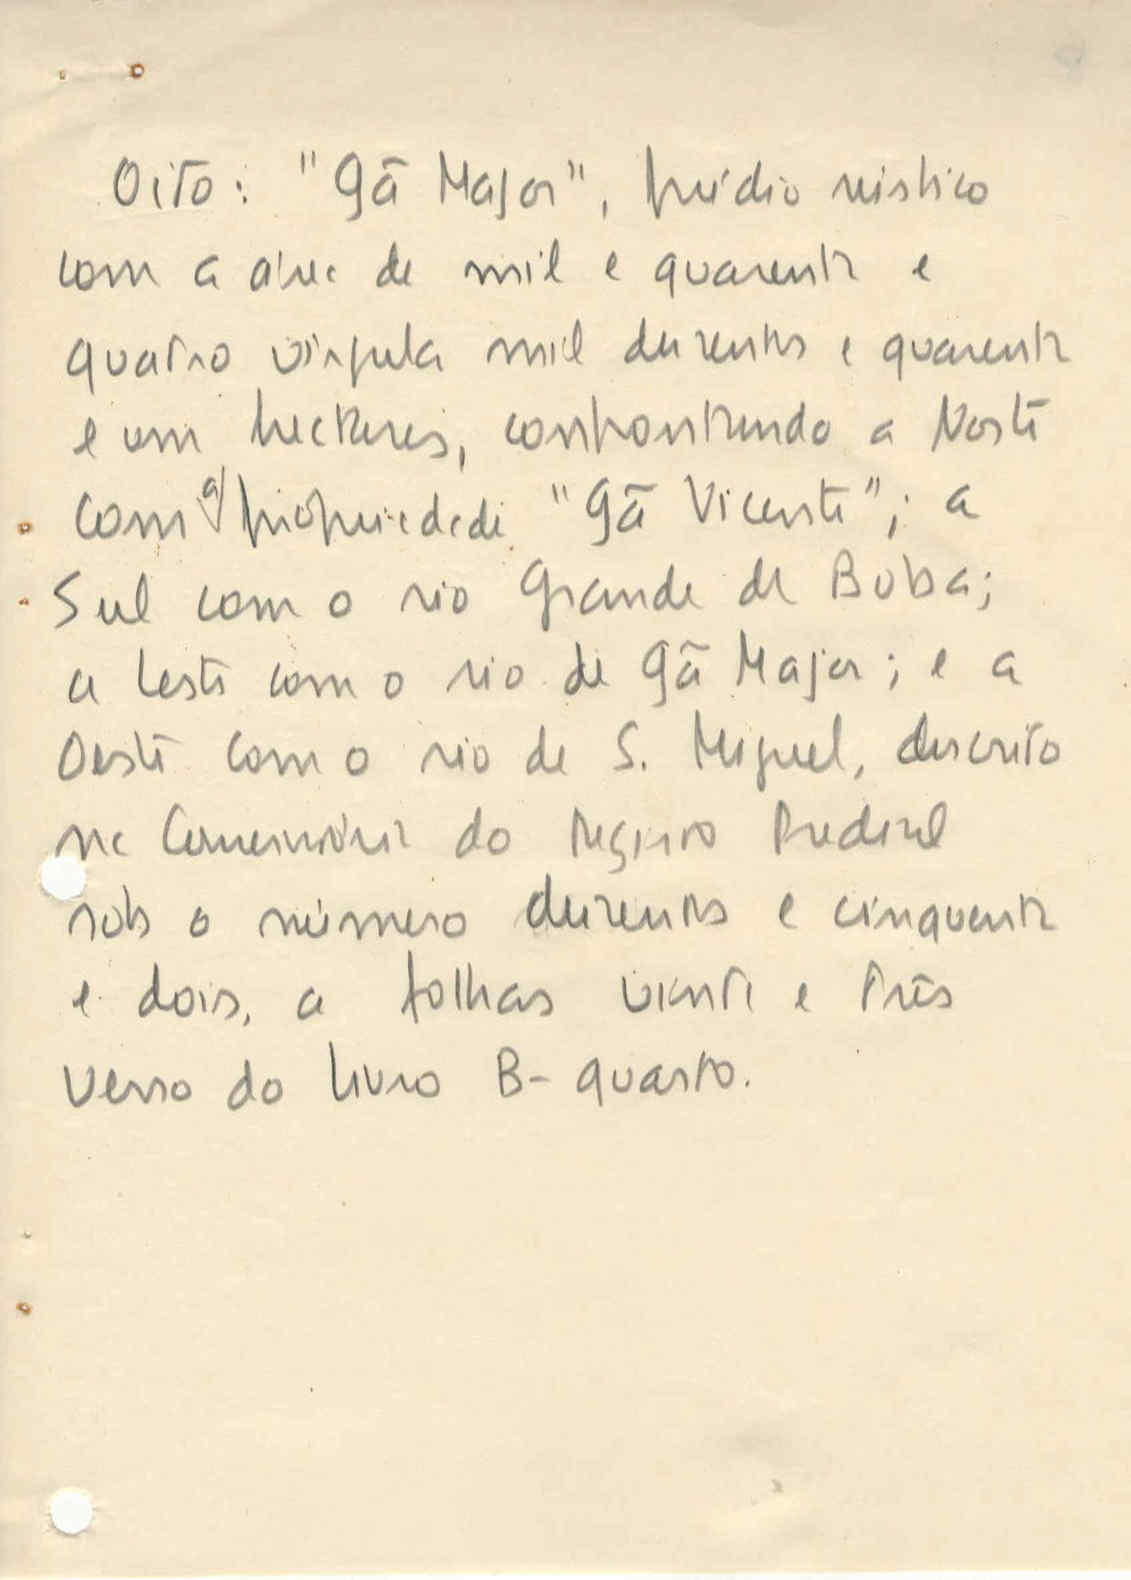 Oito: "Gã Major", prédio rústico
com a área de mil e quarenta e
quatro vírgula mil duzentos e quarenta
e um hectares, confrontando a Norte
com a propriedade "Gã Vicente"; a
Sul com o rio Grande de Buba;
a leste com o rio de Gã Major; e a
Oeste com o rio de S. Miguel, descrito
na Conservatória do Registo Predial
sob o número duzentos e cinquenta
e dois, a folhas vinte e três
verso do livro B-quarto.